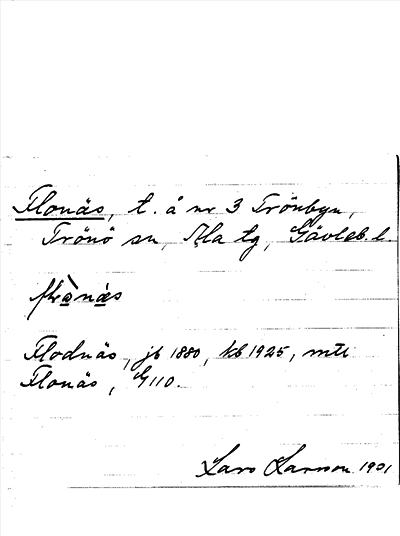 Flonäs, t. å nr 3 Trönbyn,
Trönö sn, Ala tg, Gävleb. l.
Flodnäs, jb 1880, kb 1925, mtl
Flonäs, G110.
Lars Larsson 1901